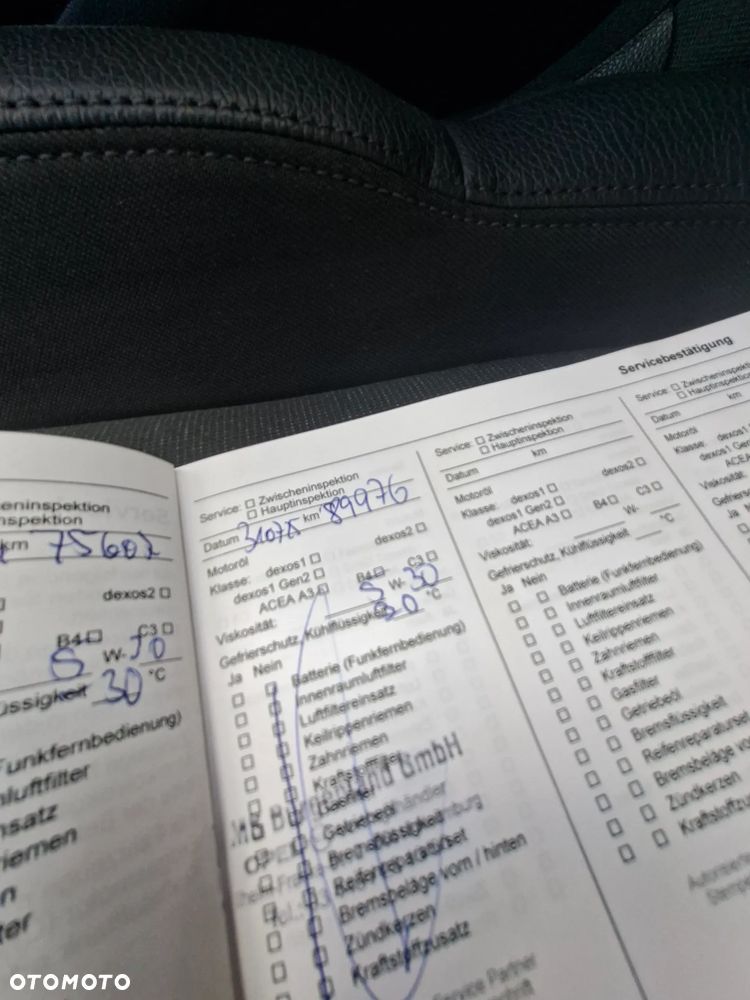 Servicebestätigung
eninspektion
nspektion
km 75607
dexos2
B4 C3
5 W- 30
üssigkeit 30 °C
Funkfernbedienung)
mluftfilter
nsatz
riemen
n
ter
Service: Zwischeninspektion
Hauptinspektion
Datum km 89976
Motoröl
Klasse: dexos1 dexos2
dexos1 Gen2
ACEA A3 B4 C3
Viskosität: 5 W- 30
Gefrierschutz, Kühlflüssigkeit 30 °C
Ja Nein
Batterie (Funkfernbedienung)
Innenraumluftfilter
Luftfiltereinsatz
Keilrippenriemen
Zahnriemen
Kraftstofffilter
Gasfilter
Getriebeöl
Bremsflüssigkeit
Reifenreparaturset
Bremsbeläge vorn / hinten
Zündkerzen
Kraftstoffzusatz
GmbH
Service Partner
Service: Zwischeninspektion
Hauptinspektion
Datum km
Motoröl
Klasse: dexos1 dexos2
dexos1 Gen2
ACEA A3 B4 C3
Viskosität: W-
Gefrierschutz, Kühlflüssigkeit °C
Ja Nein
Batterie (Funkfernbedienung)
Innenraumluftfilter
Luftfiltereinsatz
Keilrippenriemen
Zahnriemen
Kraftstofffilter
Gasfilter
Getriebeöl
Bremsflüssigkeit
Reifenreparaturset
Bremsbeläge vorn
Zündkerzen
Kraftstoffzu
Autorisier
Stempel
Service: Zwischeninspekti
Hauptinspektion
Datum km
Motoröl
Klasse: dexos1
dexos1 Gen
ACEA
Viskosität:
Gefriersch
Ja
OTOMOTO